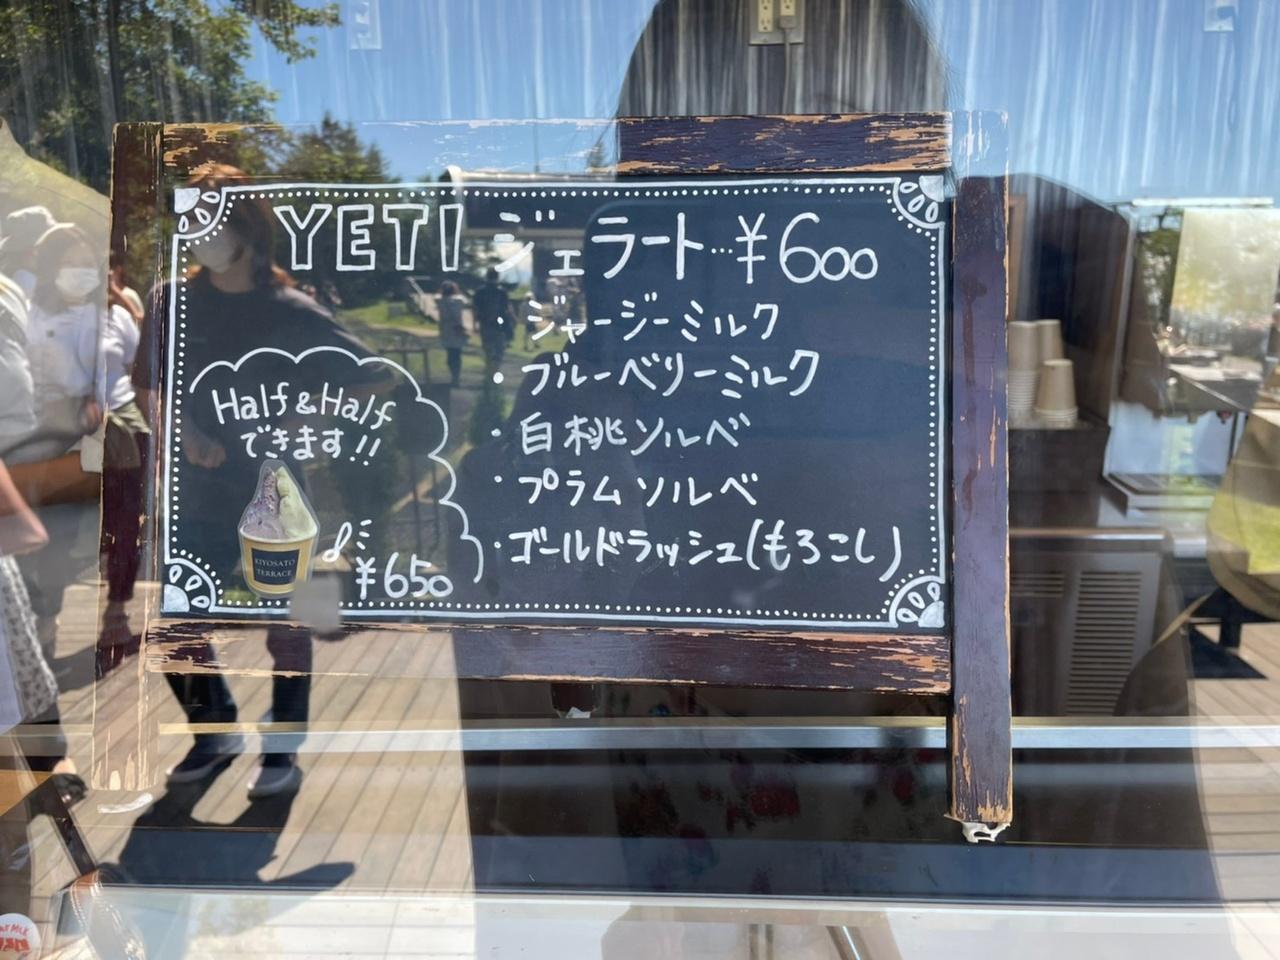 YETI ジェラート…¥600
・ジャージーミルク
・ブルーベリーミルク
・白桃ソルベ
・プラムソルベ
・ゴールドラッシュ(もろこし)
Half&Half
できます!!
KIYOSATO
TERRACE
¥650